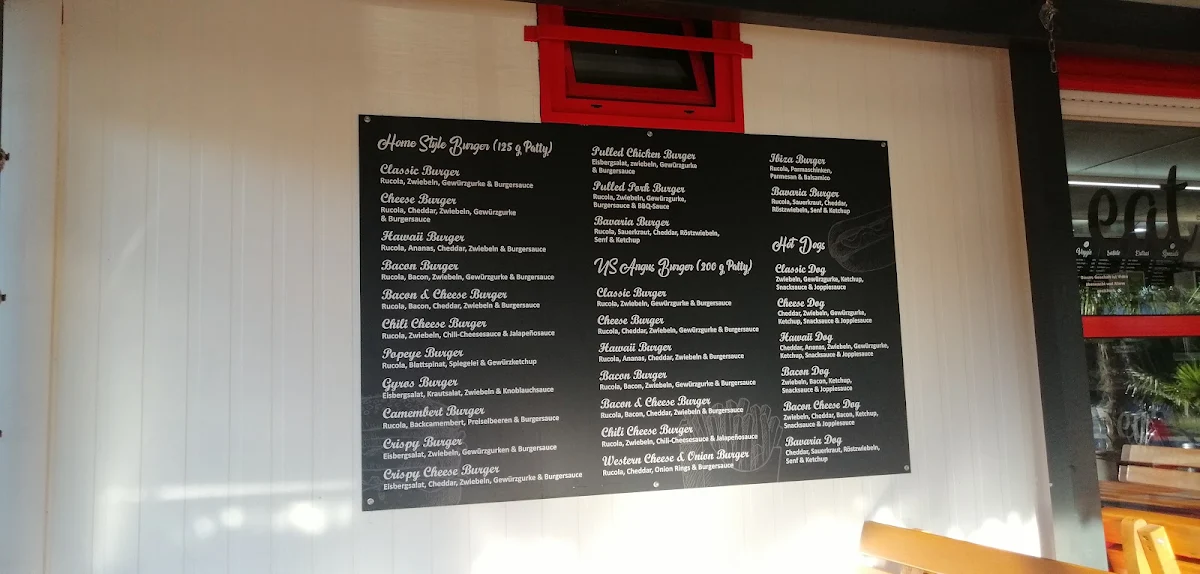 Home Style Burger (125 g Patty)
Classic Burger
Rucola, Zwiebeln, Gewürzgurke & Burgersauce
Cheese Burger
Rucola, Cheddar, Zwiebeln, Gewürzgurke
& Burgersauce
Hawaii Burger
Rucola, Ananas, Cheddar, Zwiebeln & Burgersauce
Bacon Burger
Rucola, Bacon, Zwiebeln, Gewürzgurke & Burgersauce
Bacon & Cheese Burger
Rucola, Bacon, Cheddar, Zwiebeln & Burgersauce
Chili Cheese Burger
Rucola, Zwiebeln, Chili-Cheesesauce & Jalapeñosauce
Popeye Burger
Rucola, Blattspinat, Spiegelei & Gewürzketchup
Gyros Burger
Eisbergsalat, Krautsalat, Zwiebeln & Knoblauchsauce
Camembert Burger
Rucola, Backcamembert, Preiselbeeren & Burgersauce
Crispy Burger
Eisbergsalat, Zwiebeln, Gewürzgurken & Burgersauce
Crispy Cheese Burger
Eisbergsalat, Cheddar, Zwiebeln, Gewürzgurke & Burgersauce
Pulled Chicken Burger
Eisbergsalat, zwiebeln, Gewürzgurke
& Burgersauce
Pulled Pork Burger
Rucola, Zwiebeln, Gewürzgurke,
Burgersauce & BBQ-Sauce
Bavaria Burger
Rucola, Sauerkraut, Cheddar, Röstzwiebeln,
Senf & Ketchup
US Angus Burger (200 g Patty)
Classic Burger
Rucola, Zwiebeln, Gewürzgurke & Burgersauce
Cheese Burger
Rucola, Cheddar, Zwiebeln, Gewürzgurke & Burgersauce
Hawaii Burger
Rucola, Ananas, Cheddar, Zwiebeln & Burgersauce
Bacon Burger
Rucola, Bacon, Zwiebeln, Gewürzgurke & Burgersauce
Bacon & Cheese Burger
Rucola, Bacon, Cheddar, Zwiebeln & Burgersauce
Chili Cheese Burger
Rucola, Zwiebeln, Chili-Cheesesauce & Jalapeñosauce
Western Cheese & Onion Burger
Rucola, Cheddar, Onion Rings & Burgersauce
Ibiza Burger
Rucola, Parmaschinken,
Parmesan & Balsamico
Bavaria Burger
Rucola, Sauerkraut, Cheddar,
Röstzwiebeln, Senf & Ketchup
Hot Dogs
Classic Dog
Zwiebeln, Gewürzgurke, Ketchup,
Snacksauce & Joppiesauce
Cheese Dog
Cheddar, Zwiebeln, Gewürzgurke,
Ketchup, Snacksauce & Joppiesauce
Hawaii Dog
Cheddar, Ananas, Zwiebeln, Gewürzgurke,
Ketchup, Snacksauce & Joppiesauce
Bacon Dog
Zwiebeln, Bacon, Ketchup,
Snacksauce & Joppiesauce
Bacon Cheese Dog
Zwiebeln, Cheddar, Bacon, Ketchup,
Snacksauce & Joppiesauce
Bavaria Dog
Cheddar, Sauerkraut, Röstzwiebeln,
Senf & Ketchup
eat